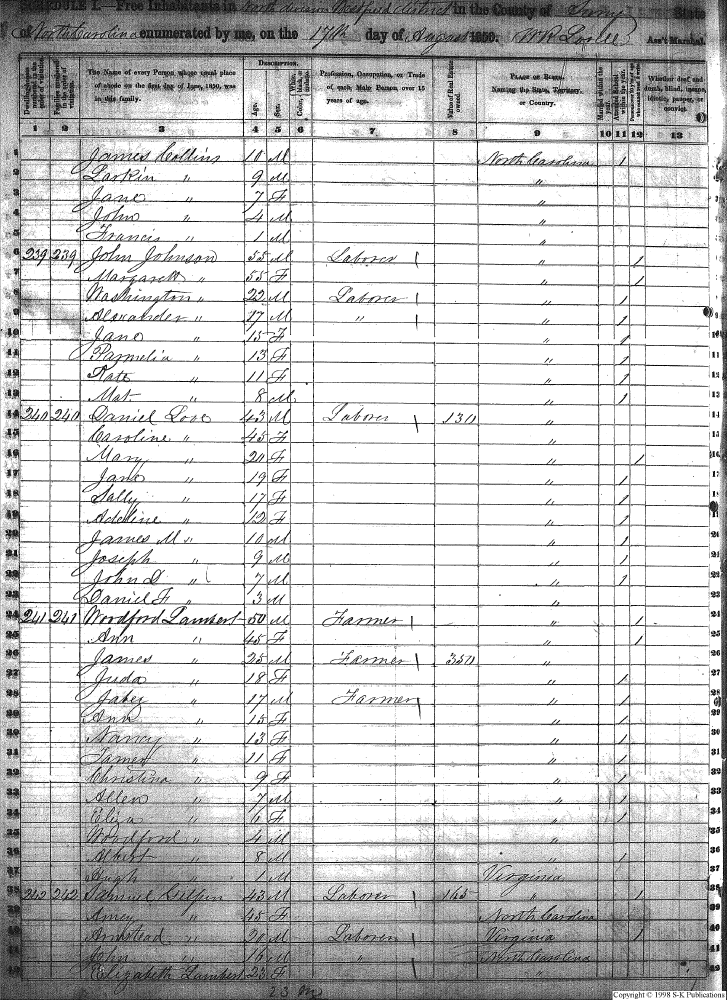 SCHEDULE I.—Free Inhabitants in North division Westfield District in the County of Surry State
of North Carolina enumerated by me, on the 17th day of August 1850. Ass't Marshal.
DESCRIPTION.
The Name of every Person whose usual place of abode on the first day of June, 1850, was in this family.
Age.
Sex.
Profession, Occupation, or Trade of each Male Person, over 15 years of age.
Value of Real Estate owned.
PLACE OF BIRTH. Naming the State, Territory, or Country.
Whether deaf and dumb, blind, insane, idiotic, pauper, or convict
1 2 3 4 5 6 7 8 9 10 11 12 13
1 James Collins 10 M North Carolina 1
2 Larkin " 9 M "
3 Jane " 7 F "
4 John " 4 M "
5 Francis " 1 M "
6 239 239 John Johnson 55 M Laborer " 1
7 Margarett " 55 F " 1
8 Washington " 22 M Laborer " 1
9 Alexander " 17 M " " 1
10 Jane " 15 F " 1
11 Pamelia " 13 F " 1
12 Kate " 11 F " 1
13 Mat " 8 M " 1
14 240 240 Daniel Love 43 M Laborer 130 "
15 Caroline " 45 F "
16 Mary " 20 F " 1
17 Jane " 19 F " 1
18 Sally " 17 F " 1
19 Adeline " 12 F " 1
20 James M " 10 M " 1
21 Joseph " 9 M " 1
22 John D " 7 M " 1
23 Daniel F " 3 M "
24 241 241 Woodford Lambert 50 M Farmer " 1
25 Ann " 45 F " 1
26 James " 25 M Farmer 350 "
27 Juda " 18 F " 1
28 17 M Farmer " 1
29 Ann " 15 F " 1
30 Nancy " 13 F " 1
31 " 11 F " 1
32 Christina " 9 F " 1
33 Allen " 7 M " 1
34 Eliza " 6 F " 1
35 Woodford " 4 M "
36 Albert " 8 M " 1
37 Hugh " 1 M Virginia
38 242 242 Samuel 43 M Laborer 165 " 1
39 Amey " 45 F North Carolina
40 Armstead " 20 M Laborer Virginia 1
41 John " 16 M " North Carolina
42 Elizabeth Lambert 23 F "
23 m
Copyright © 1998 S-K Publications